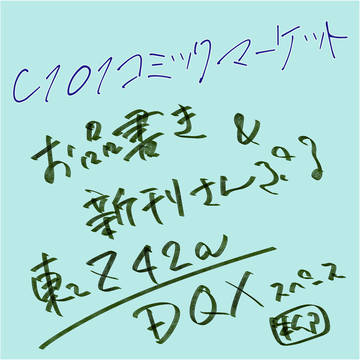 C101コミックマーケット
お品書き &
新刊さんぷる
東2 Z42a
DQX スペース